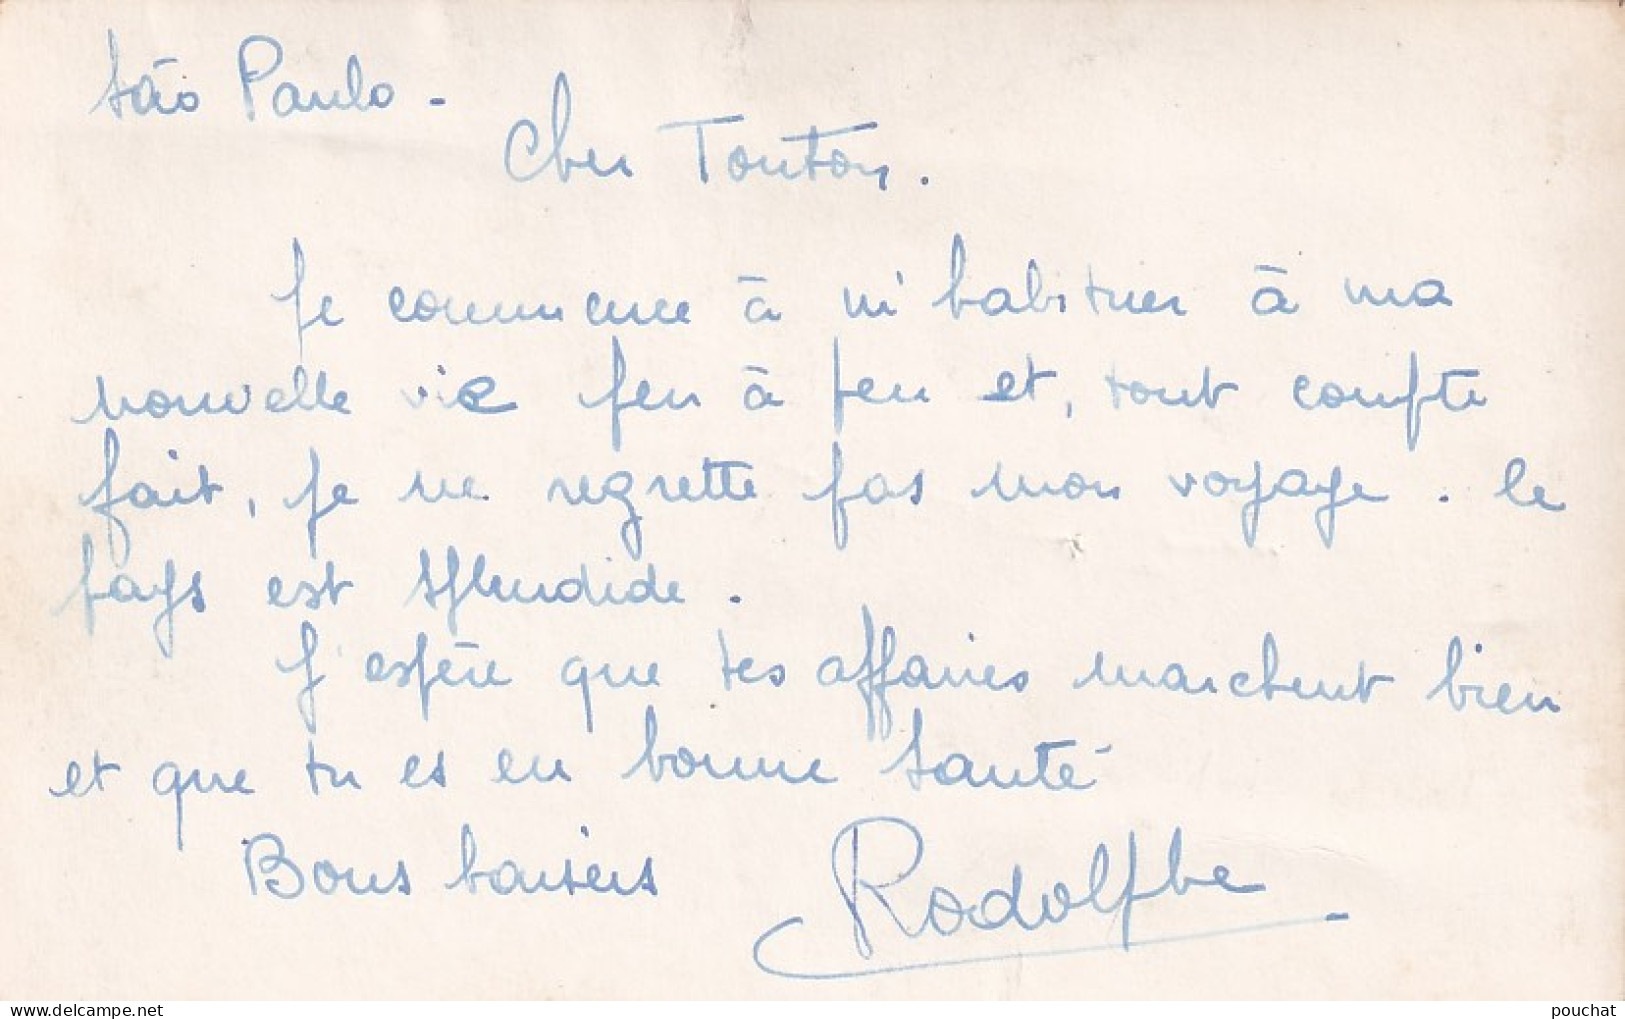 São Paulo -
Cher Tonton.
Je commence à m'habituer à ma
nouvelle vie peu à peu et, tout compte
fait, je ne regrette pas mon voyage. le
pays est splendide.
J'espère que tes affaires marchent bien
et que tu es en bonne santé
Bons baisers Rodolphe
pouchat